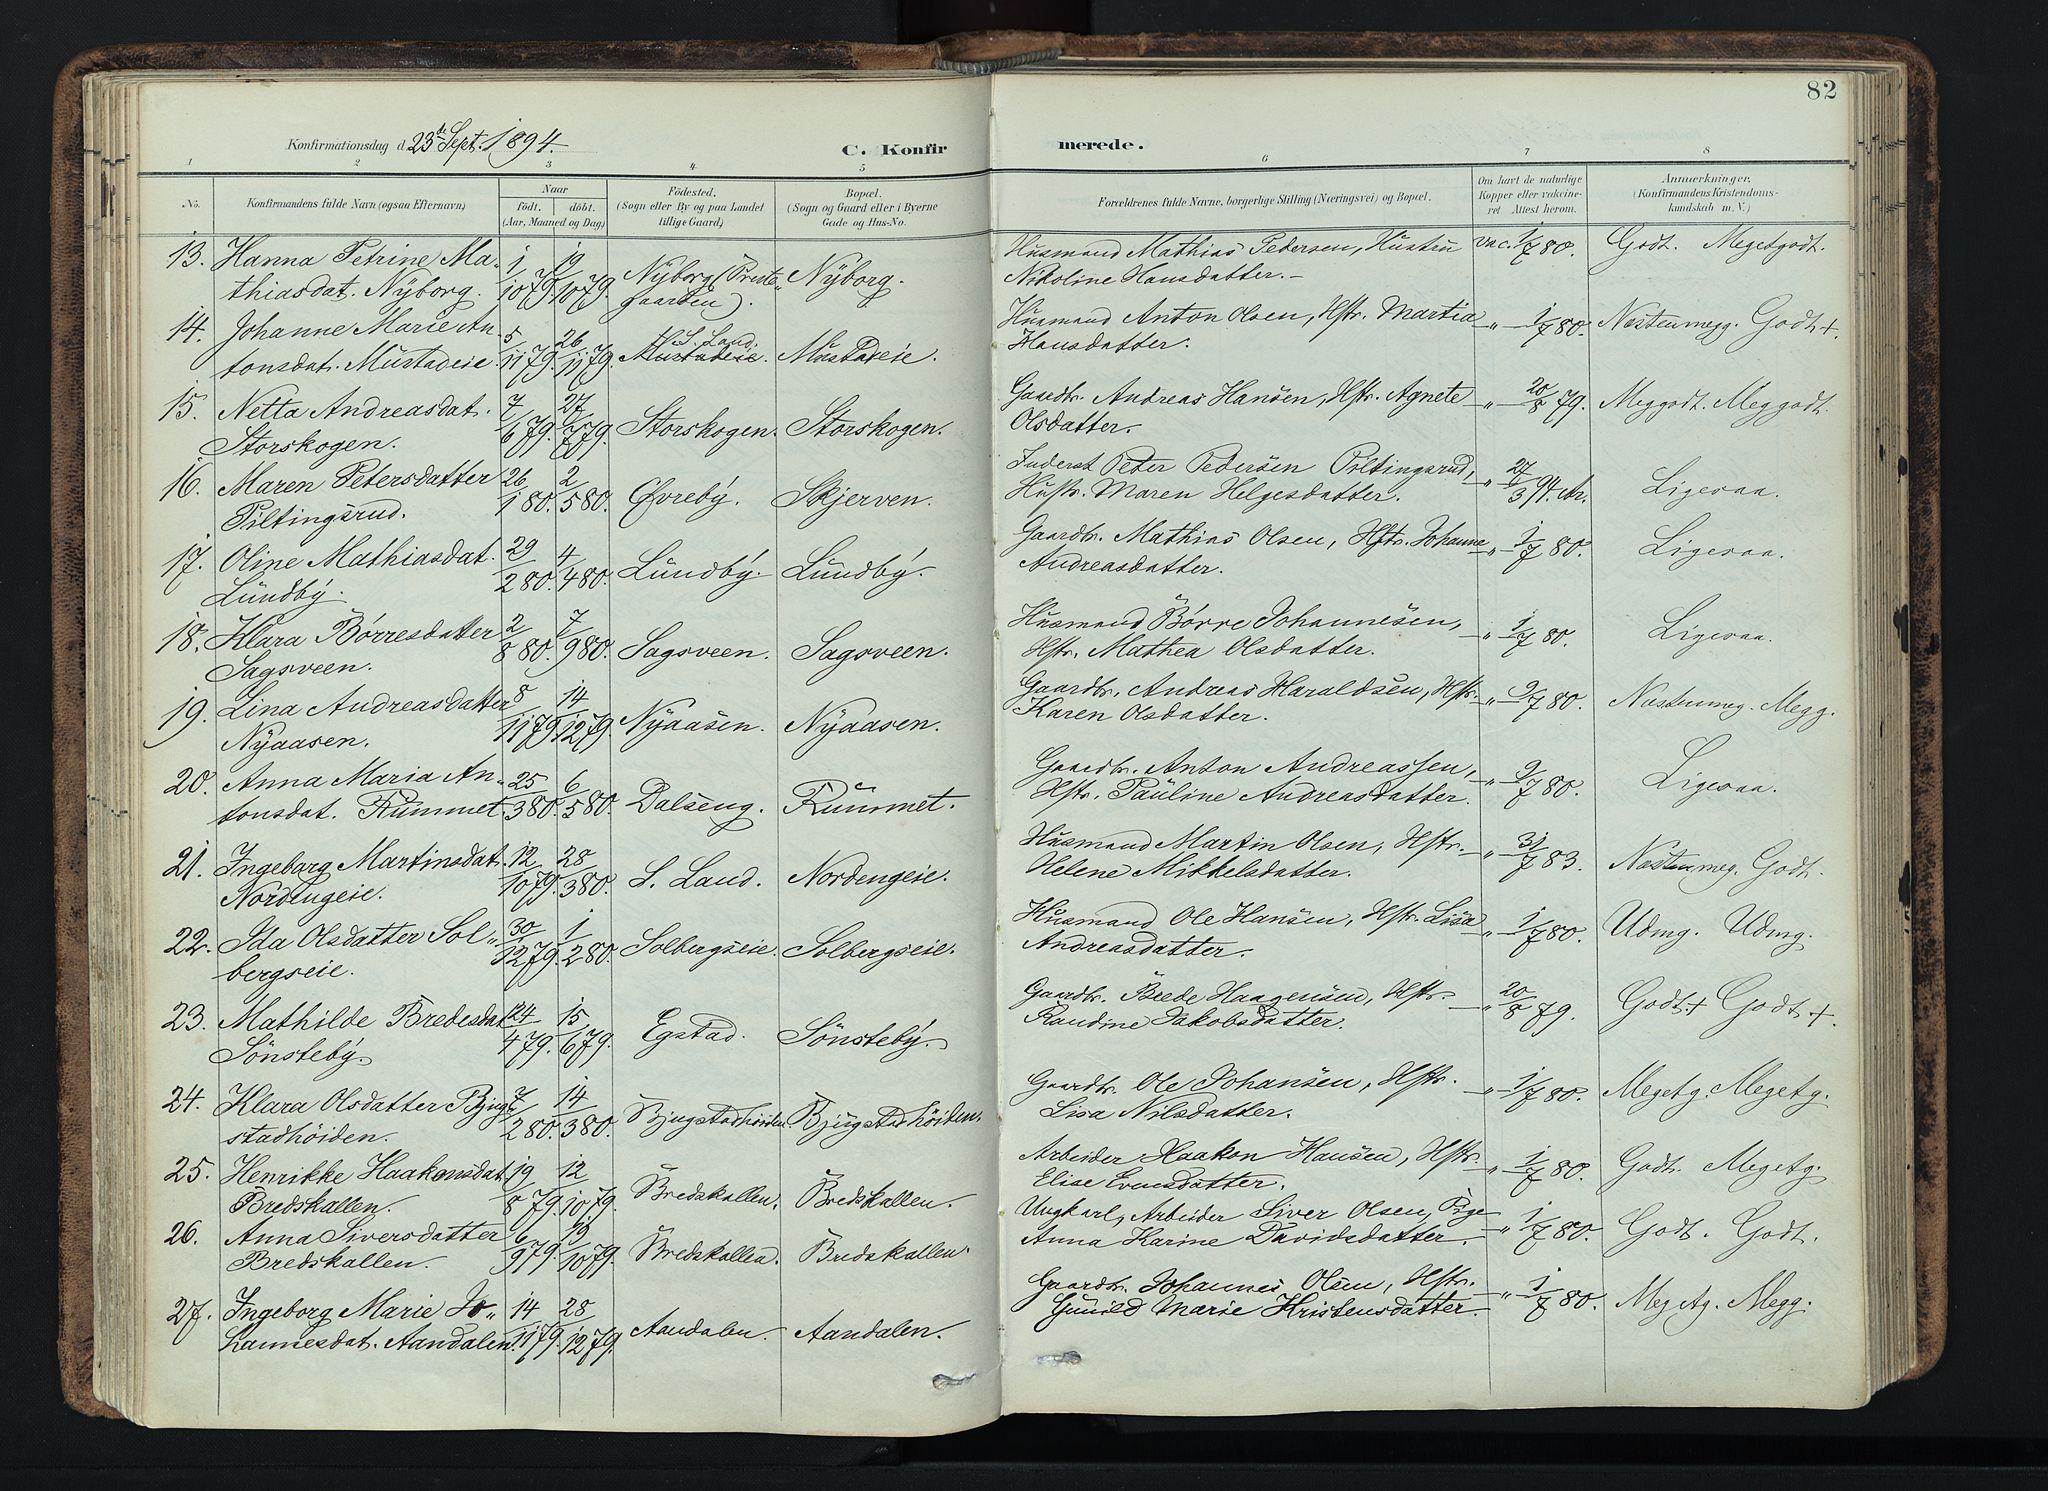 82
Konfirmationsdag d. 23de Sept. 1894.
C. Konfirmerede.
1 2 3 4 5 6 7 8
No. Konfirmandens fulde Navn (ogsaa Efternavn). Naar födt. döbt. (Aar, Maaned og Dag.) Födested. (Sogn eller By og paa Landet tillige Gaard.) Bopæl. (Sogn og Gaard eller i Byerne Gade og Hus-No. Forældrenes fulde Navne, borgerlige Stilling (Næringsvei) og Bopæl. Om havt de naturlige Kopper eller vakcineret Attest herom. Anmærkninger. (Konfirmandens Kristendomskundskab m. V.)
13. Hanna Petrine Ma- 1/10 79. 19/10 79. Nyborg (Preste- Nyborg. Husmand Mathias Pedersen, Hustru vac. 1/7 80. Godt. Megetgodt.
thiasdat. Nyborg. gaarden). Nikoline Hansdatter.
14. Johanne Marie An- 5/11 79. 26/11 79. S. Land. Mustadeie. Mustadeie. Husmand Anton Olsen, Hstr. Martia " 1/7 80. Næstenmegg. Godt+.
tonsdat. Mustadeie. Hansdatter.
15. Netta Andreasdat. 7/6 79. 27/7 79. Storskogen. Storskogen. Gaardbr. Andreas Hansen, Hstr. Agnete " 20/8 79. Meggodt. Meggodt.
Storskogen. Olsdatter.
16. Maren Petersdatter 26/1 80. 2/5 80. Øvreby. Skjerven. Inderst Peter Pedersen Piltingsrud, " 27/3 94. Ligesaa.
Piltingsrud. Hustr. Maren Helgesdatter.
17. Oline Mathiasdat. 29/2 80. 4/4 80. Lundby. Lundby. Gaardbr. Mathias Olsen, Hstr. Johanne " 1/7 80. Ligesaa.
Lundby. Andreasdatter.
18. Klara Børresdatter 2/8 80. 7/9 80. Sagsveen. Sagsveen. Husmand Børre Johannesen, " 1/7 80. Ligesaa.
Sagsveen. Hstr. Mathea Olsdatter.
19. Lina Andreasdatter 8/11 79. 14/12 79. Nyaasen. Nyaasen. Gaardbr. Andreas Haraldsen, Hstr. " 9/7 80. Næstenmeg. Megg.
Nyaasen. Karen Olsdatter.
20. Anna Maria An- 25/3 80. 6/5 80. Dalseng. Rummet. Gaardbr. Anton Andreassen, " 9/7 80. Ligesaa.
tonsdat. Rummet. Hstr. Pauline Andreasdatter.
21. Ingeborg Martinsdat. 12/10 79. 28/3 80. S. Land. Nordengeie. Husmand Martin Olsen, Hstr. " 31/7 83. Næstenmeg. Godt.
Nordengeie. Helene Mikkelsdatter.
22. Ida Olsdatter Sol- 30/12 79. 1/2 80. Solbergseie. Solbergseie. Husmand Ole Hansen, Hstr. Lisa " 1/7 80. Udmg. Udmg.
bergseie. Andreasdatter.
23. Mathilde Bredesdat. 24/4 79. 15/6 79. Egstad. Sönsteby. Gaardbr. Brede Haagensen, Hstr. " 20/8 79. Godt+ Godt+.
Sönsteby. Randine Jakobsdatter.
24. Klara Olsdatter Bjug- 7/2 80. 14/3 80. Bjugstadhöiden. Bjugstadhöiden. Gaardbr. Ole Johansen, Hstr. " 1/7 80. Megetg. Megetg.
stadhöiden. Lisa Nilsdatter.
25. Henrikke Haakonsdat. 19/8 79. 12/10 79. Bredskallen. Bredskallen. Arbeider Haakon Hansen, Hstr. " 1/7 80. Godt. Megetg.
Bredskallen. Elise Evensdatter.
26. Anna Siversdatter 6/9 79. 19/10 79. Bredskallen. Bredskallen. Ungkarl, Arbeider Siver Olsen, Pige " 1/7 80. Godt. Godt.
Bredskallen. Anna Karine Davidsdatter.
27. Ingeborg Marie Jo- 14/11 79. 28/12 79. Aandalen. Aandalen. Gaardbr. Johannes Olsen, Hstr. " 1/7 80. Megetg. Megg.
hannesdat. Aandalen. Gunild Marie Kristensdatter.